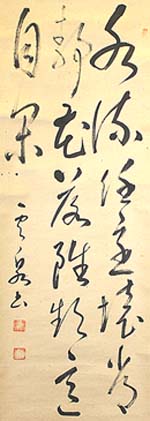 水流任急境常
静花落雖頻意
自閑